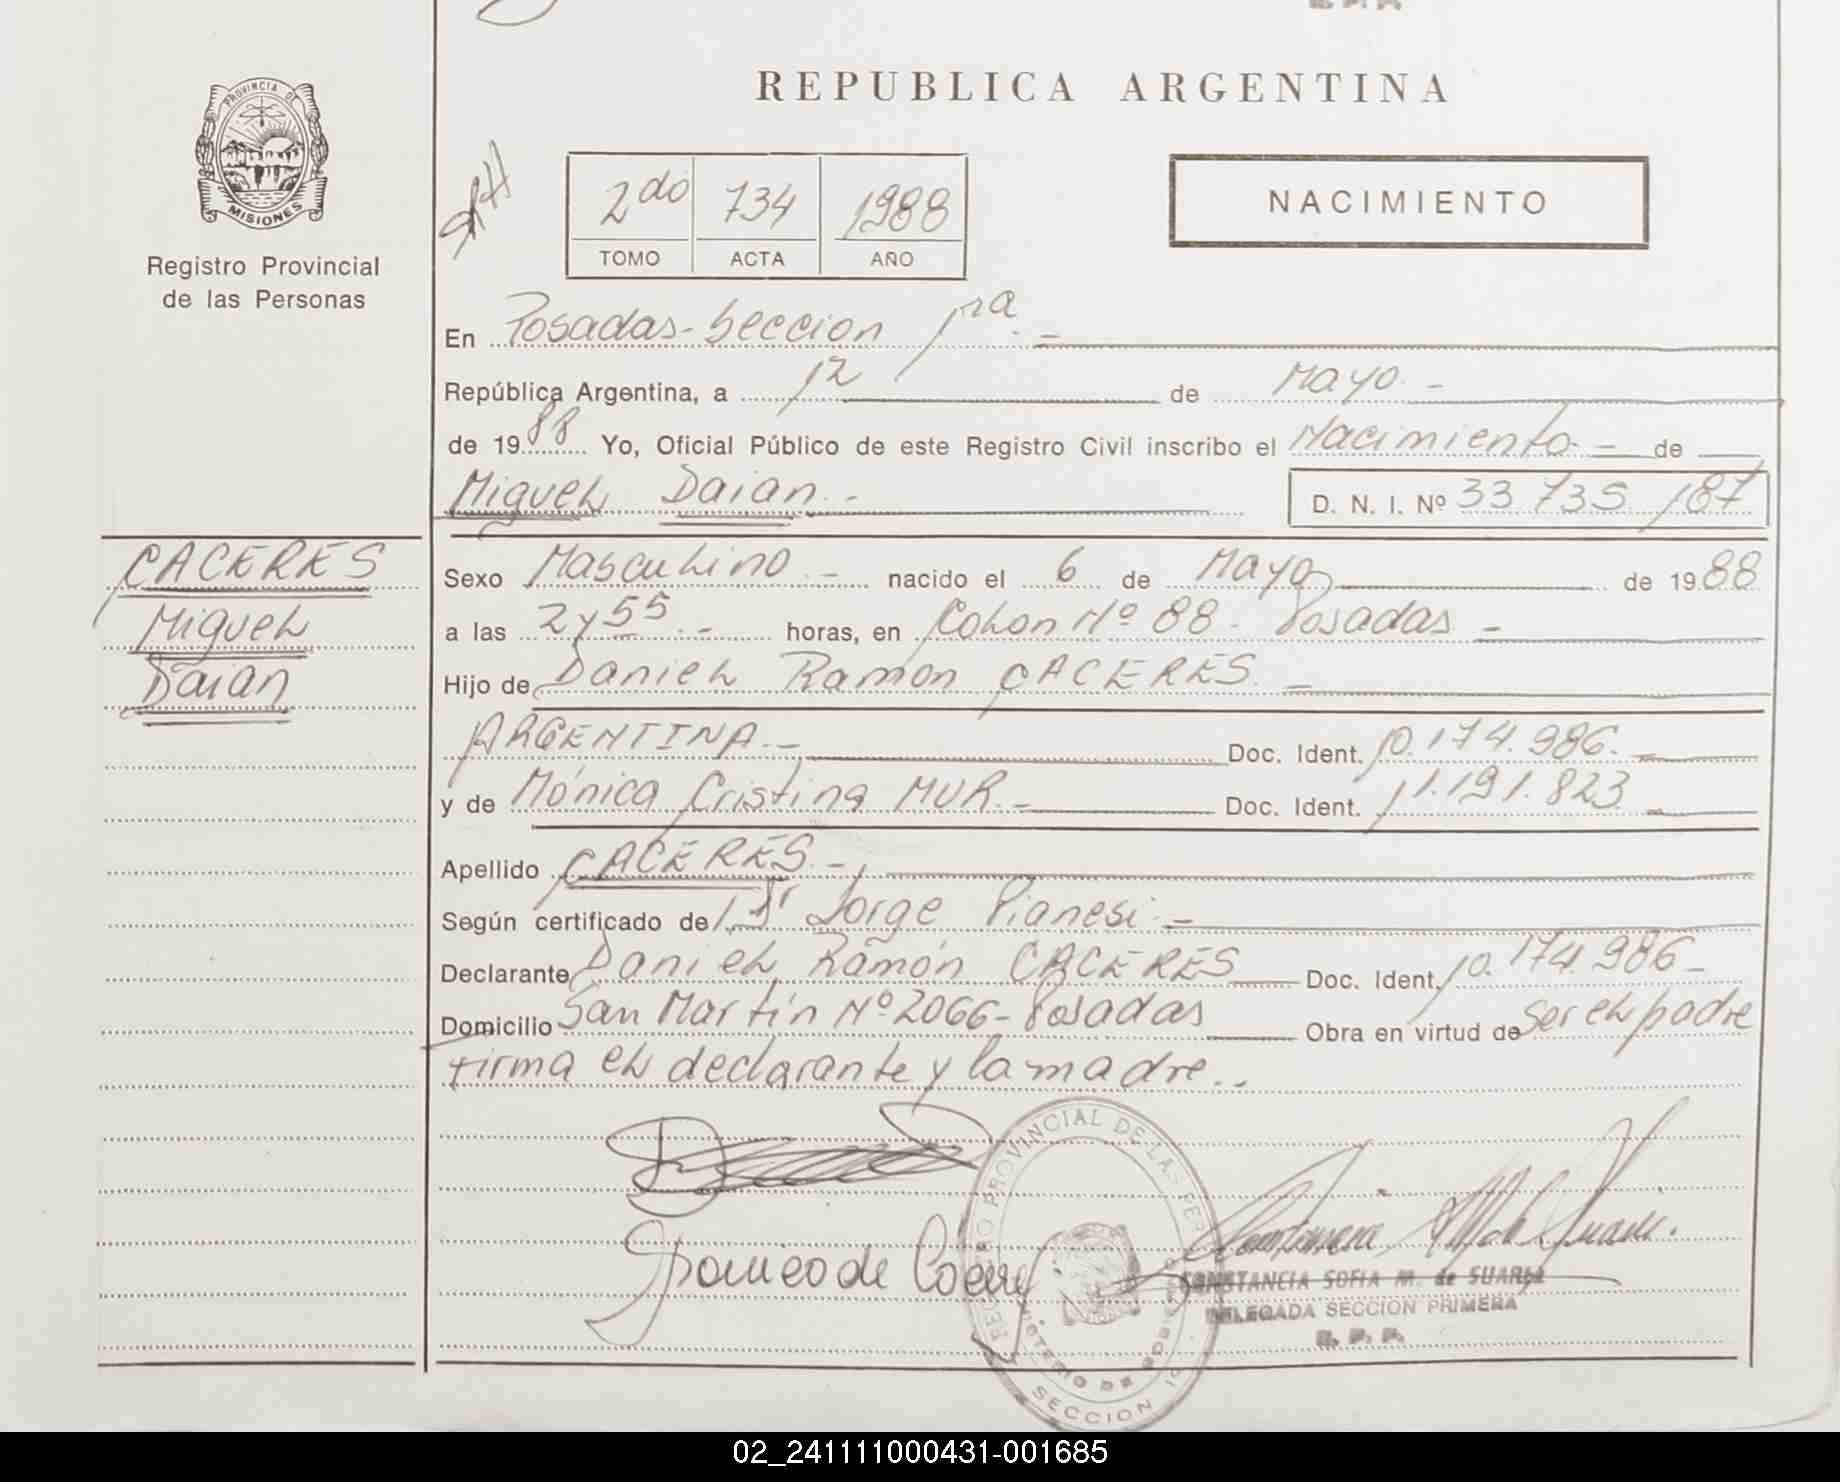 REPUBLICA ARGENTINA
PROVINCIA DE
MISIONES
Registro Provincial
de las Personas
2do 734 1988
TOMO ACTA AÑO
NACIMIENTO
En Posadas-Seccion 1ra.-
República Argentina, a 12 de Mayo.-
de 1988 Yo, Oficial Público de este Registro Civil inscribo el Nacimiento- de
Miguel Daian.- D. N. I. Nº 33.735.187
CACERES
Miguel
Daian
Sexo Masculino.- nacido el 6 de Mayo de 1988
a las 2 y 55.- horas, en Colon Nº 88- Posadas-
Hijo de Daniel Ramon CACERES.-
ARGENTINA.- Doc. Ident. 10.174.986.-
y de Mónica Cristina MUR.- Doc. Ident. 11.191.823-
Apellido CACERES.-
Según certificado de Dr Jorge Pianesi.-
Declarante Daniel Ramón CACERES Doc. Ident. 10.174.986-
Domicilio San Martín Nº 2066-Posadas Obra en virtud de ser el padre
firma el declarante y la madre.-
REGISTRO PROVINCIAL DE LAS PER
MINISTERIO DE GOBIERNO
SECCION 1
CONSTANCIA SOFIA M. de SUAREZ
DELEGADA SECCION PRIMERA
R. P. P.
02_241111000431-001685